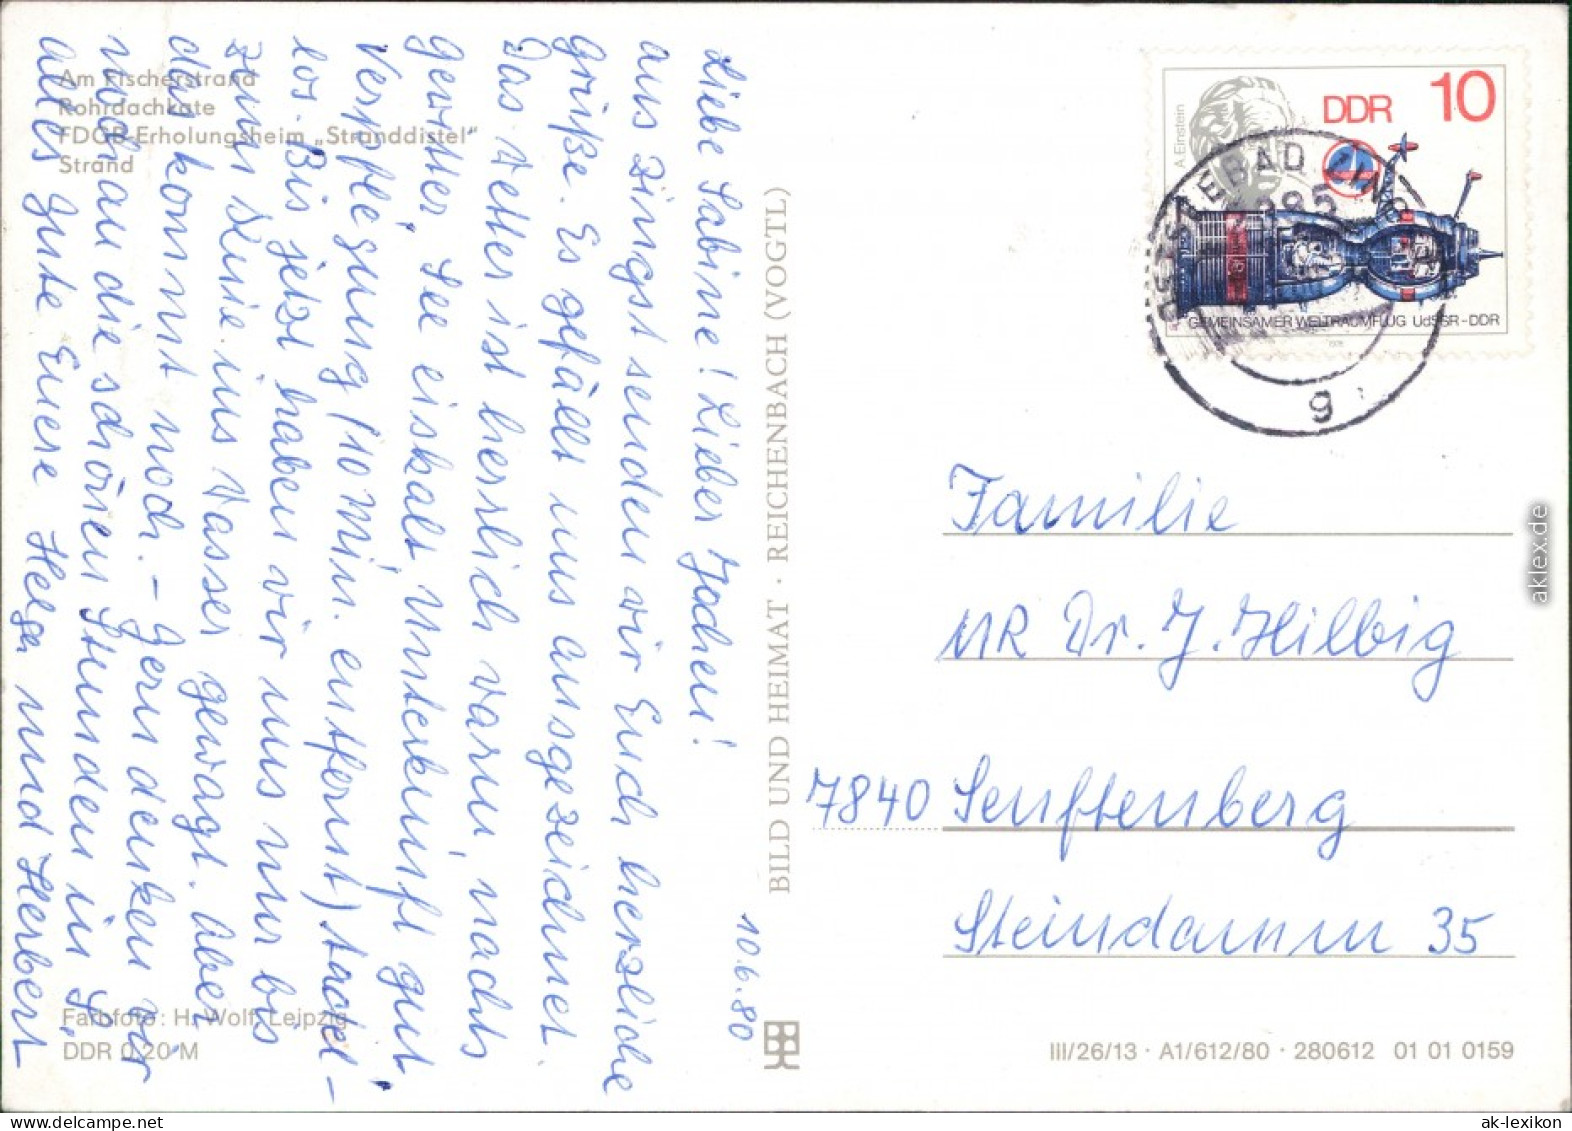 Am Fischerstrand
Rohrdachkate
FDGB-Erholungsheim „Stranddistel"
Strand
Liebe Sabine! Lieber Jochen!
aus Zingst senden wir Euch herzliche
Grüße. Es gefällt uns ausgezeichnet.
Das Wetter ist herrlich warm, nachts
Gewitter, See eiskalt, Unterkunft gut
Verpflegung (10 Min. entfernt) tadel-
los. Bis jetzt haben wir uns nur bis
zum Knie ins Wasser gewagt. Aber
das kommt noch. – Gern denken wir
noch an die schönen Stunden in S.
Alles Gute Euere Helga und Herbert
10.6.80
Farbfoto: H. Wolf, Leipzig
DDR 0,20 M
BILD UND HEIMAT · REICHENBACH (VOGTL)
A. Einstein
DDR 10
GEMEINSAMER WELTRAUMFLUG UdSSR-DDR
OSTSEEBAD ZINGST
g
Familie
MR Dr. J. Hilbig
7840 Senftenberg
Steindamm 35
III/26/13 · A1/612/80 · 280612 01 01 0159
aklex.de
ak-lexikon